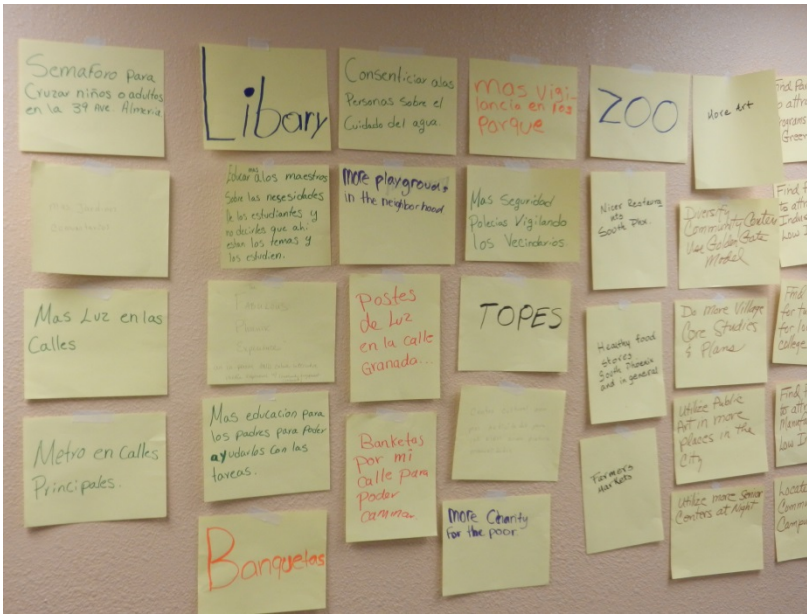 Semaforo para
Cruzar niños o adultos
en la 39 Ave. Almeria
Mas Luz en las
Calles
Metro en Calles
Principales.
Libary
Educar alos maestros
mas
Sobre las necesidades
de los estudiantes y
no decirles que ahi
estan los temas y
los estudien.
Mas educacion para
los padres para Poder
ayudarlos con las
tareas.
Banquetas
Consenticiar alas
Personas sobre el
Cuidado del agua.
More playgrounds
in the neighborhood
Postes
de Luz
en la calle
Granada...
Banketas
por mi
calle para
poder
caminar.
mas vigi-
lancia en los
Parque
Mas Seguridad
Policias Vigilando
los Vecindarios.
TOPES
more Charity
for the poor
ZOO
Nicer Restaura
nts
South Phx.
Healthy food
stores
South Phoenix
and in general
Farmers
Markets
More Art
Diversity
Community Centers
Use Golden Gate
Model
Do More Village
Core Studies
& Plans
Utilize Public
Art in more
places in the
City
Utilize more Senior
Centers at Night
Find
to attr
Green
Find
to attr
Indus
Low I
Find
for
for
college
Find
to att
Manufa
Low I
Locate
Comm
Camp